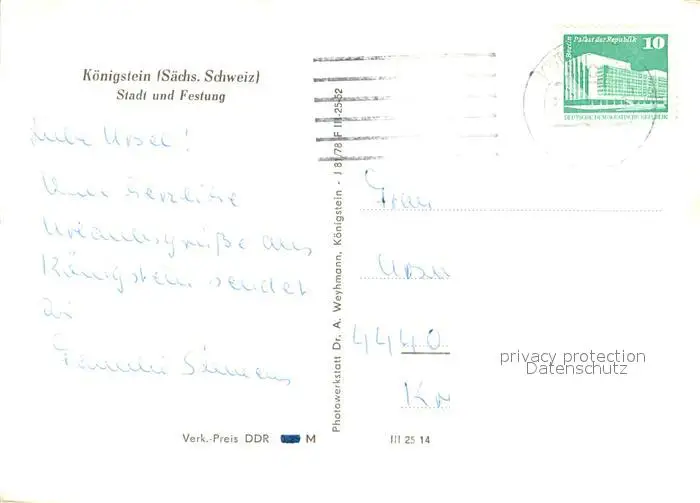 Königstein (Sächs. Schweiz)
Stadt und Festung
Liebe Ursel!
herzliche
Urlaubsgrüße aus
Königstein sendet
Dir
Familie Siemens
Verk.-Preis DDR M
Photowerkstatt Dr. A. Weyhmann, Königstein - J 81/78 F III-25-52
Berlin Palast der Republik 10
DEUTSCHE DEMOKRATISCHE REPUBLIK
Frau
4440
III 25 14
privacy protection
Datenschutz